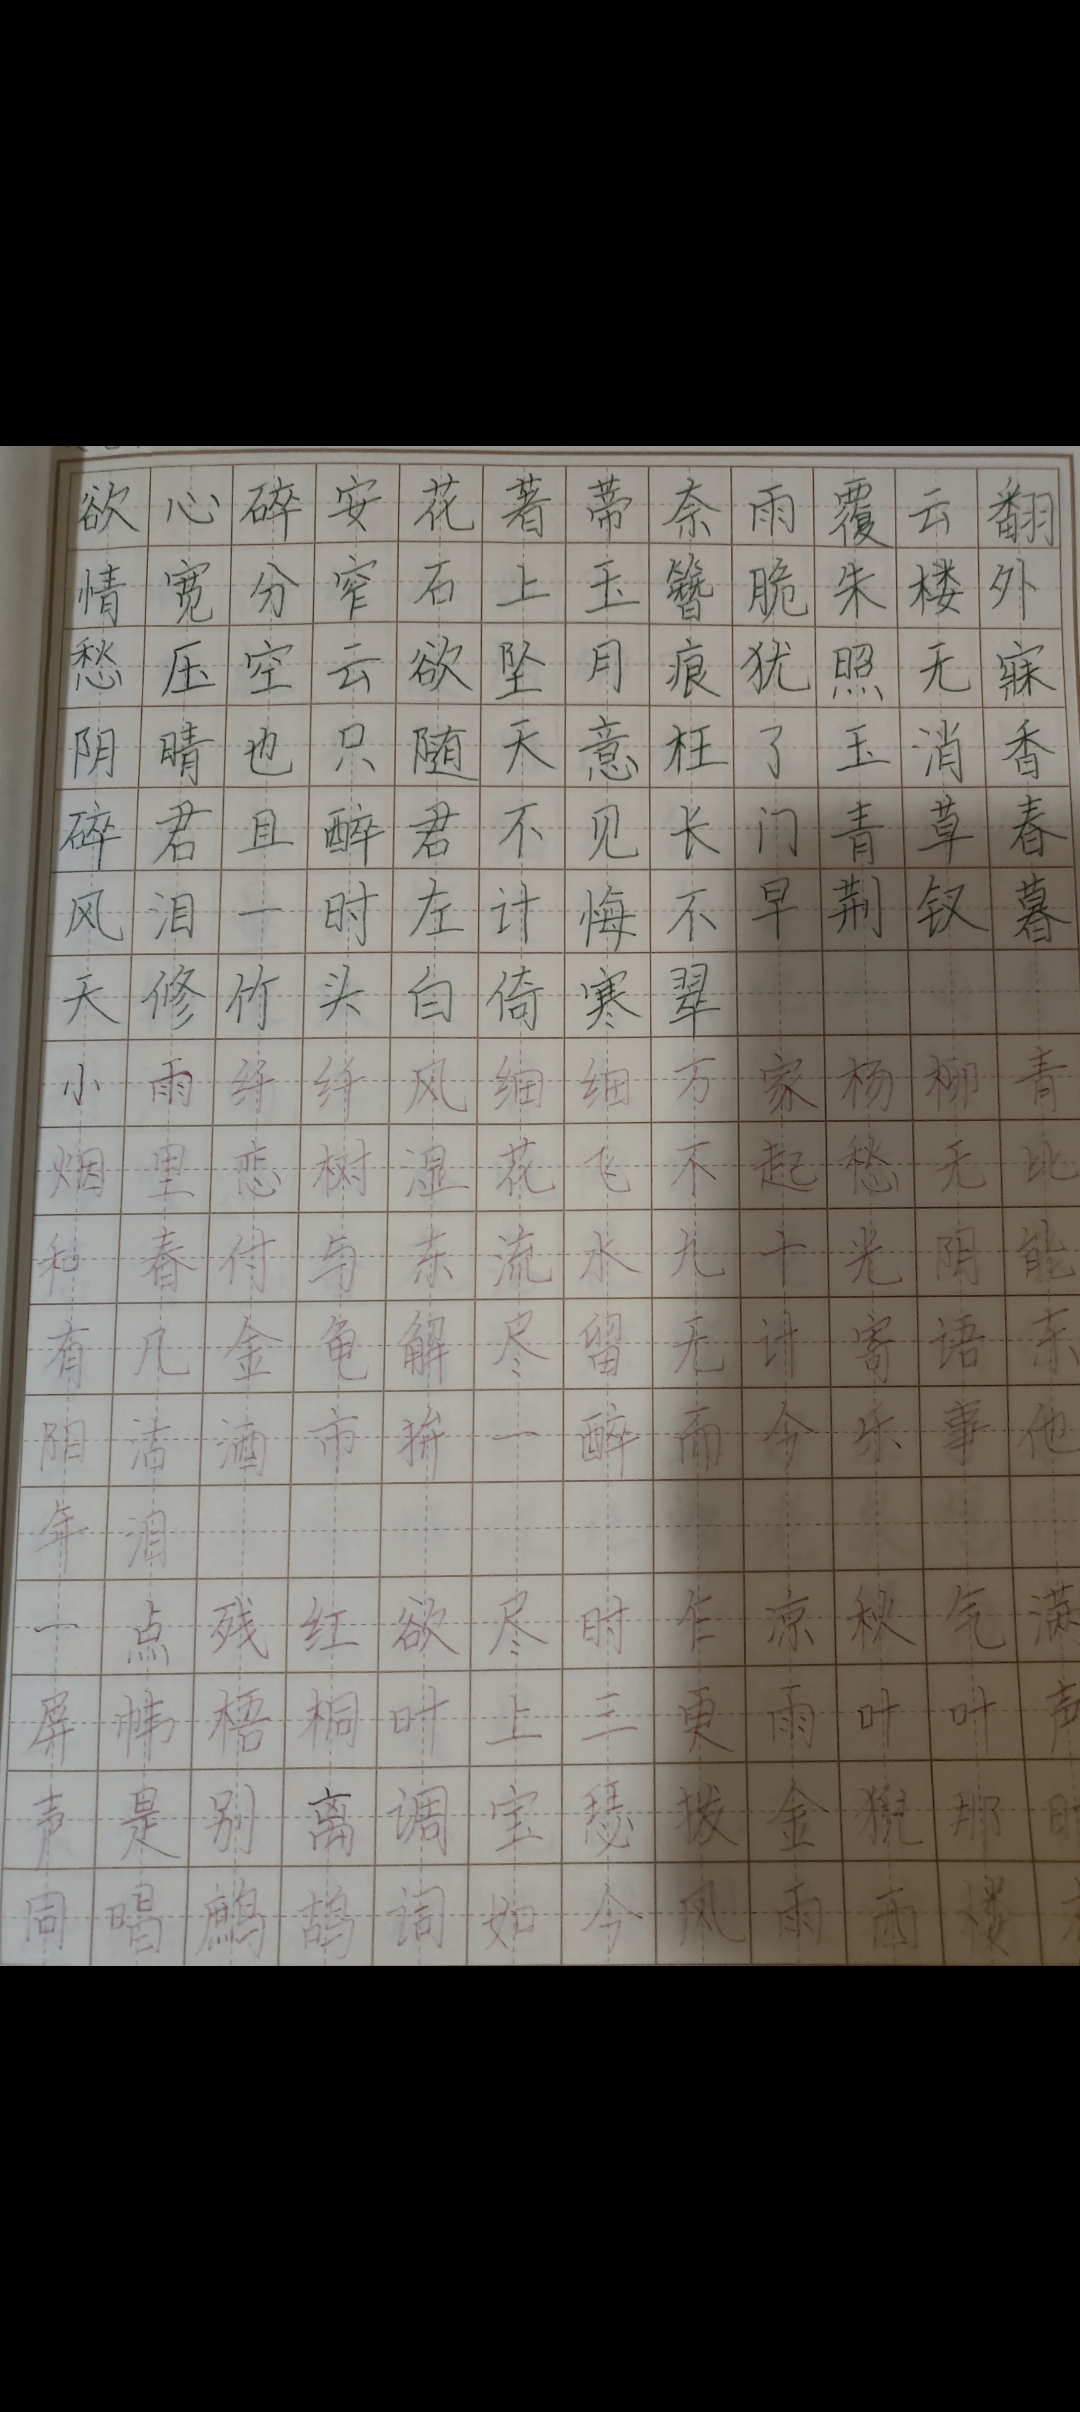 欲心碎安花著蒂奈雨覆云翻
情宽分窄石上玉簪脆朱楼外
愁压空云欲坠月痕犹照无寐
阴晴也只随天意枉了玉消香
碎君且醉君不见长门青草春
风泪一时左计悔不早荆钗暮
天修竹头白倚寒翠
小雨纤纤风细细万家杨柳青
烟里恋树湿花飞不起愁无比
和春付与东流水九十光阴能
有几金龟解尽留无计寄语东
阳沽酒市拚一醉而今乐事他
年泪
一点残红欲尽时乍凉秋气满
屏帏梧桐叶上三更雨叶叶声
声是别离调宝瑟拨金猊那时
同唱鹧鸪词如今风雨西楼